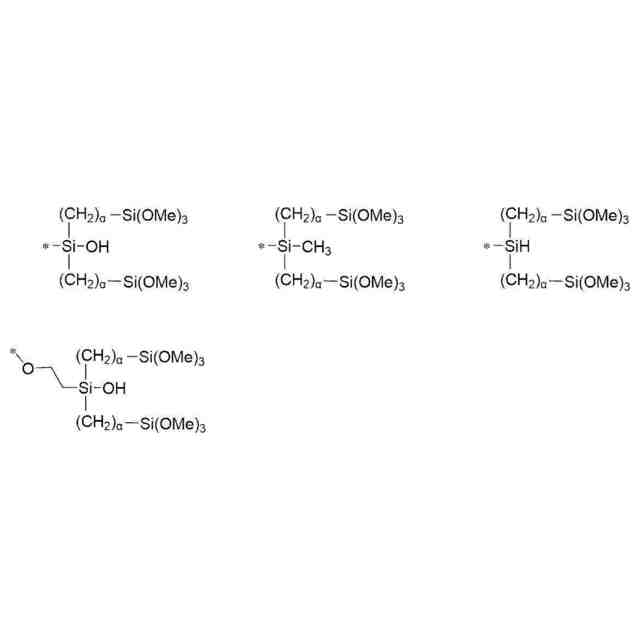 (CH₂)α–Si(OMe)₃ (CH₂)α–Si(OMe)₃ (CH₂)α–Si(OMe)₃
*–Si–OH *–Si–CH₃ *–SiH
(CH₂)α–Si(OMe)₃ (CH₂)α–Si(OMe)₃ (CH₂)α–Si(OMe)₃
* (CH₂)α–Si(OMe)₃
O Si–OH
(CH₂)α–Si(OMe)₃